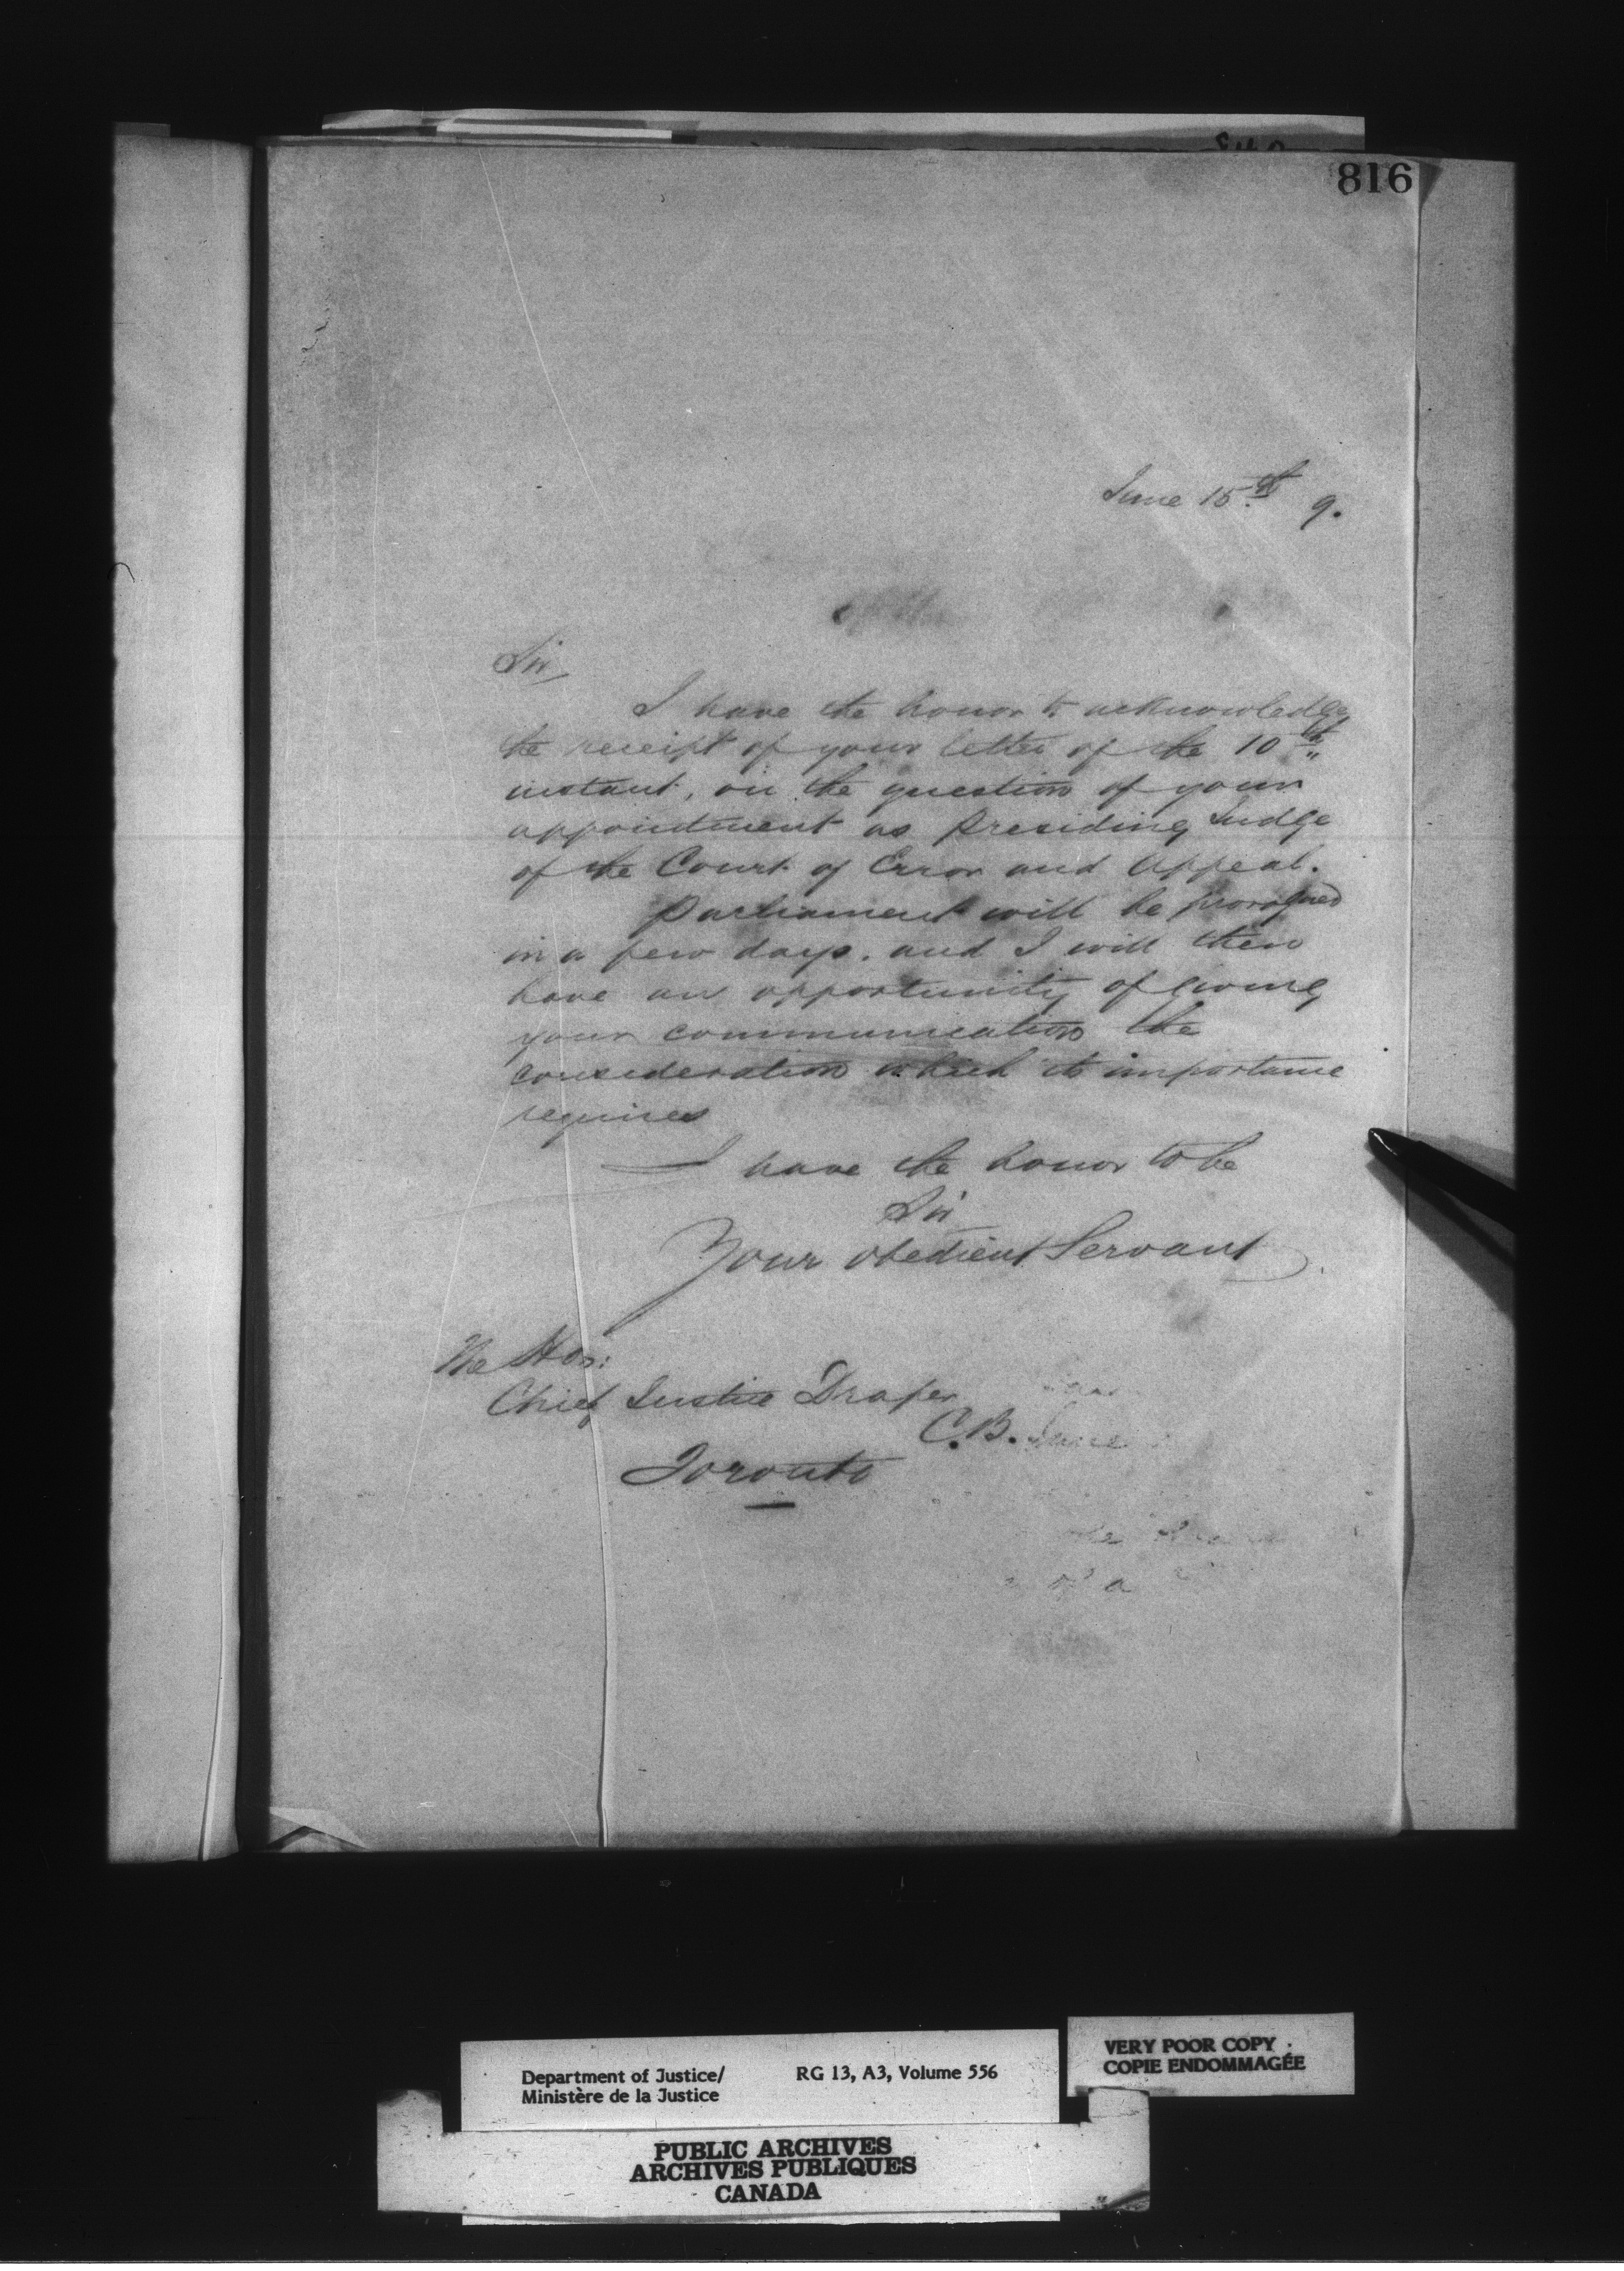 816
June 15th 9.
Sir,
I have the honor to acknowledge
the receipt of your letter of the 10th
instant, on the question of your
appointment as Presiding Judge
of the Court of Error and Appeal.
Parliament will be prorogued
in a few days. and I will then
have an opportunity of giving
your communication the
consideration which its importance
requires
I have the honor to be
Sir
Your obedient Servant
The Hon:
Chief Justice Draper
C.B.
Toronto
Department of Justice/ RG 13, A3, Volume 556
Ministère de la Justice
VERY POOR COPY
COPIE ENDOMMAGÉE
PUBLIC ARCHIVES
ARCHIVES PUBLIQUES
CANADA